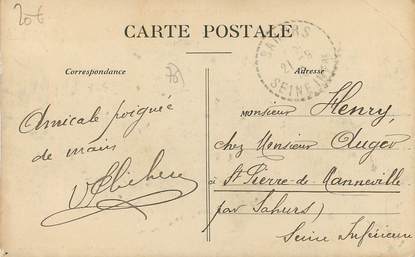 20€
CARTE POSTALE
Correspondance
Adresse
SAHURS
SEINE INFRE
Amicale poignée
de main
Monsieur Henry,
chez Monsieur Auger
à St Pierre-de-Manneville
par Sahurs)
Seine Inférieure